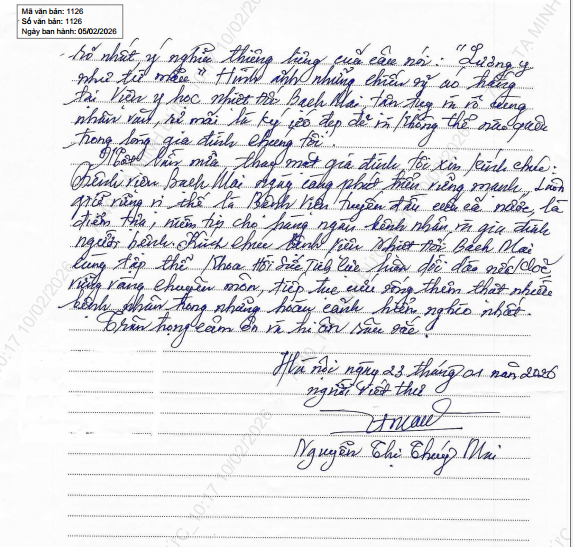 Mã văn bản: 1126
Số văn bản: 1126
Ngày ban hành: 05/02/2026
rõ nhất ý nghĩa thiêng liêng của câu nói: "Lương y
như từ mẫu" Hình ảnh những chiến sỹ áo trắng
tại Viên y học nhiệt đới Bạch Mai tận tụy
nhân văn, sẽ mãi là ký ức đẹp đẽ và không thể nào quên
trong lòng gia đình chúng tôi.
Một lần nữa, thay mặt gia đình, tôi xin kính chúc:
Bệnh viện Bạch Mai ngày càng phát triển vững mạnh, Luôn
giữ vững vị thế là Bệnh viện tuyến đầu của cả nước, là
điểm tựa, niềm tin cho hàng ngàn bệnh nhân và gia đình
người bệnh. Kính chúc Bệnh viện Nhiệt đới Bạch Mai
cùng tập thể khoa Hồi sức Tích cực luôn dồi dào sức khỏe
vững vàng chuyên môn, tiếp tục cứu sống thêm thật nhiều
bệnh nhân trong những hoàn cảnh hiểm nghèo nhất.
Trân trọng cảm ơn và tri ân sâu sắc.
Hà nội ngày 23 tháng 01 năm 2026
người viết thư
Nguyễn Thị Thúy Mai
10:17 10/02/2026
10/02/2026
TẠ MINH